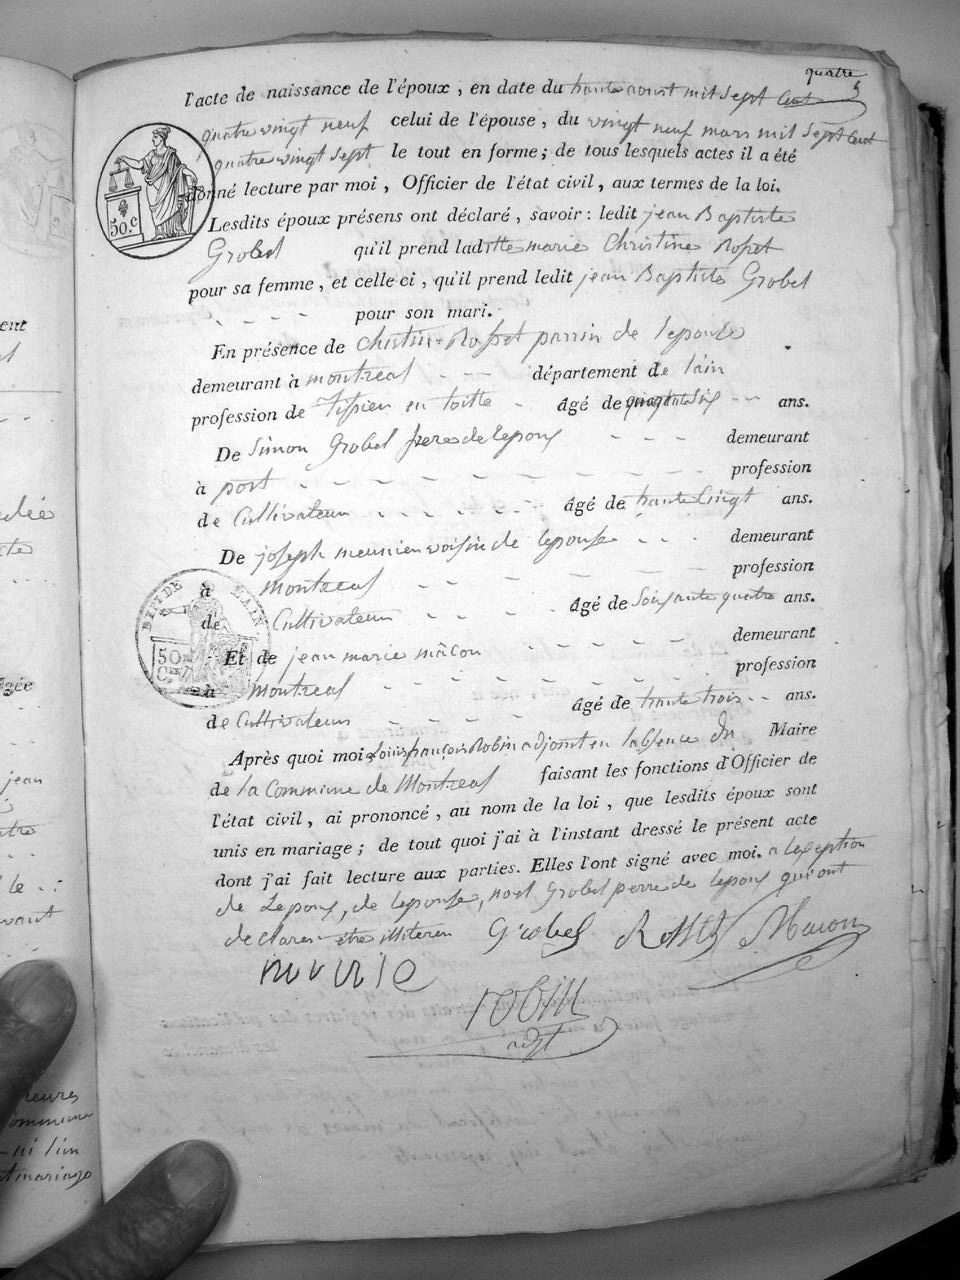 quatre
5
l'acte de naissance de l'époux, en date du trante aoust mil sept Cent
quatre vingt neuf celui de l'épouse, du vingt neuf mars mil sept Cent
quatre vingt sept le tout en forme; de tous lesquels actes il a été
donné lecture par moi, Officier de l'état civil, aux termes de la loi.
Lesdits époux présens ont déclaré, savoir: ledit jean Baptiste
Grobel qu'il prend laditte marie Christine Rosset
pour sa femme, et celle-ci, qu'il prend ledit jean Baptiste Grobel
pour son mari.
En présence de Rosset de lepouse
demeurant à montreal département de lain
profession de Tissien en toille âgé de ans.
De Simon Grobel frere de lepoux demeurant
à port profession
de Cultivateur âgé de ans.
De joseph meunier voisin de lepouse demeurant
à montreal profession
de Cultivateur âgé de Soixante quatre ans.
Et de jean marie mâcon demeurant
à montreal profession
de Cultivateur âgé de trante trois ans.
50 c
DEPT DE L'AIN
50
Après quoi moi Louis françois Robin adjoint en labsence du Maire
de la Commune de Montreal faisant les fonctions d'Officier de
l'état civil, ai prononcé, au nom de la loi, que lesdits époux sont
unis en mariage; de tout quoi j'ai à l'instant dressé le présent acte
dont j'ai fait lecture aux parties. Elles l'ont signé avec moi. a lexeption
de Lepoux, de lepouse, Grobel perre de lepoux qui ont
declarer être illiteres Grobel Rosset Macon
robin
adjt